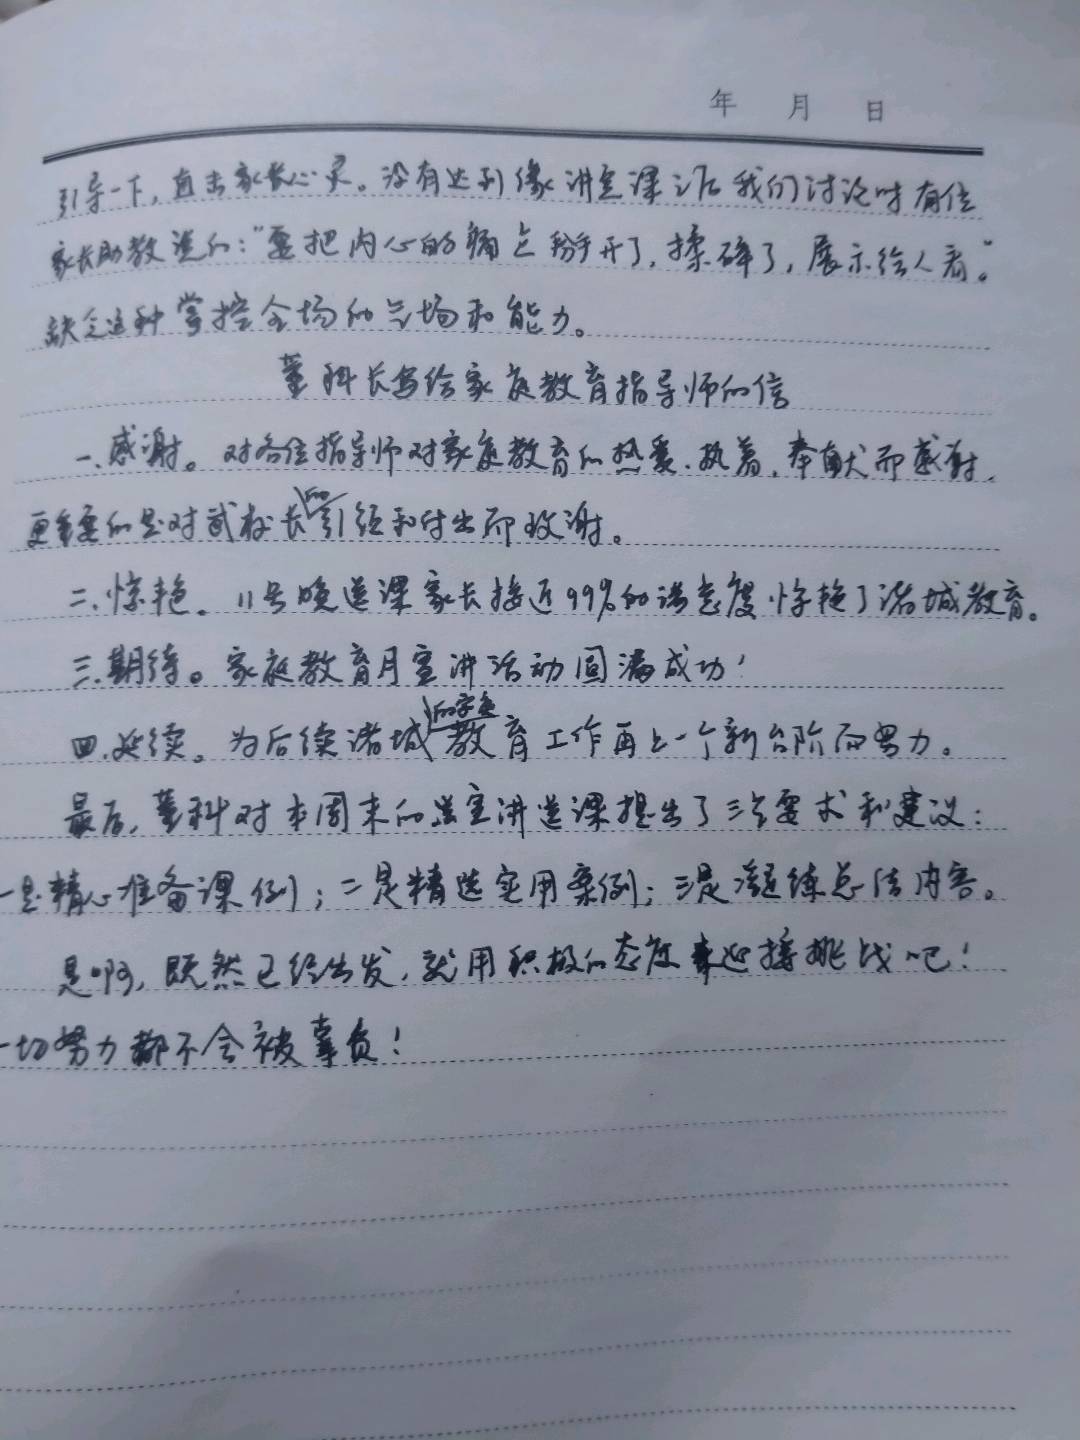 年 月 日
引导一下，直击家长心灵。没有达到像讲完课之后我们讨论时有位
家长助教说的：“要把内心的痛点掰开了，揉碎了，展示给人看。”
缺乏这种掌控全场的气场和能力。
董科长写给家庭教育指导师的信
一、感谢。对各位指导师对家庭教育的热爱、执着、奉献而感谢，
更重要的是对武校长的引领和付出而致谢。
二、惊艳。11号晚送课家长接近99%的满意度惊艳了诸城教育。
三、期待。家庭教育月宣讲活动圆满成功！
四、延续。为后续诸城的家庭教育工作再上一个新台阶而努力。
最后，董科对本周末的宣讲送课提出了三点要求和建议：
一是精心准备课例；二是精选实用案例；三是凝练总结内容。
是啊，既然已经出发，就用积极的态度来迎接挑战吧！
一切努力都不会被辜负！